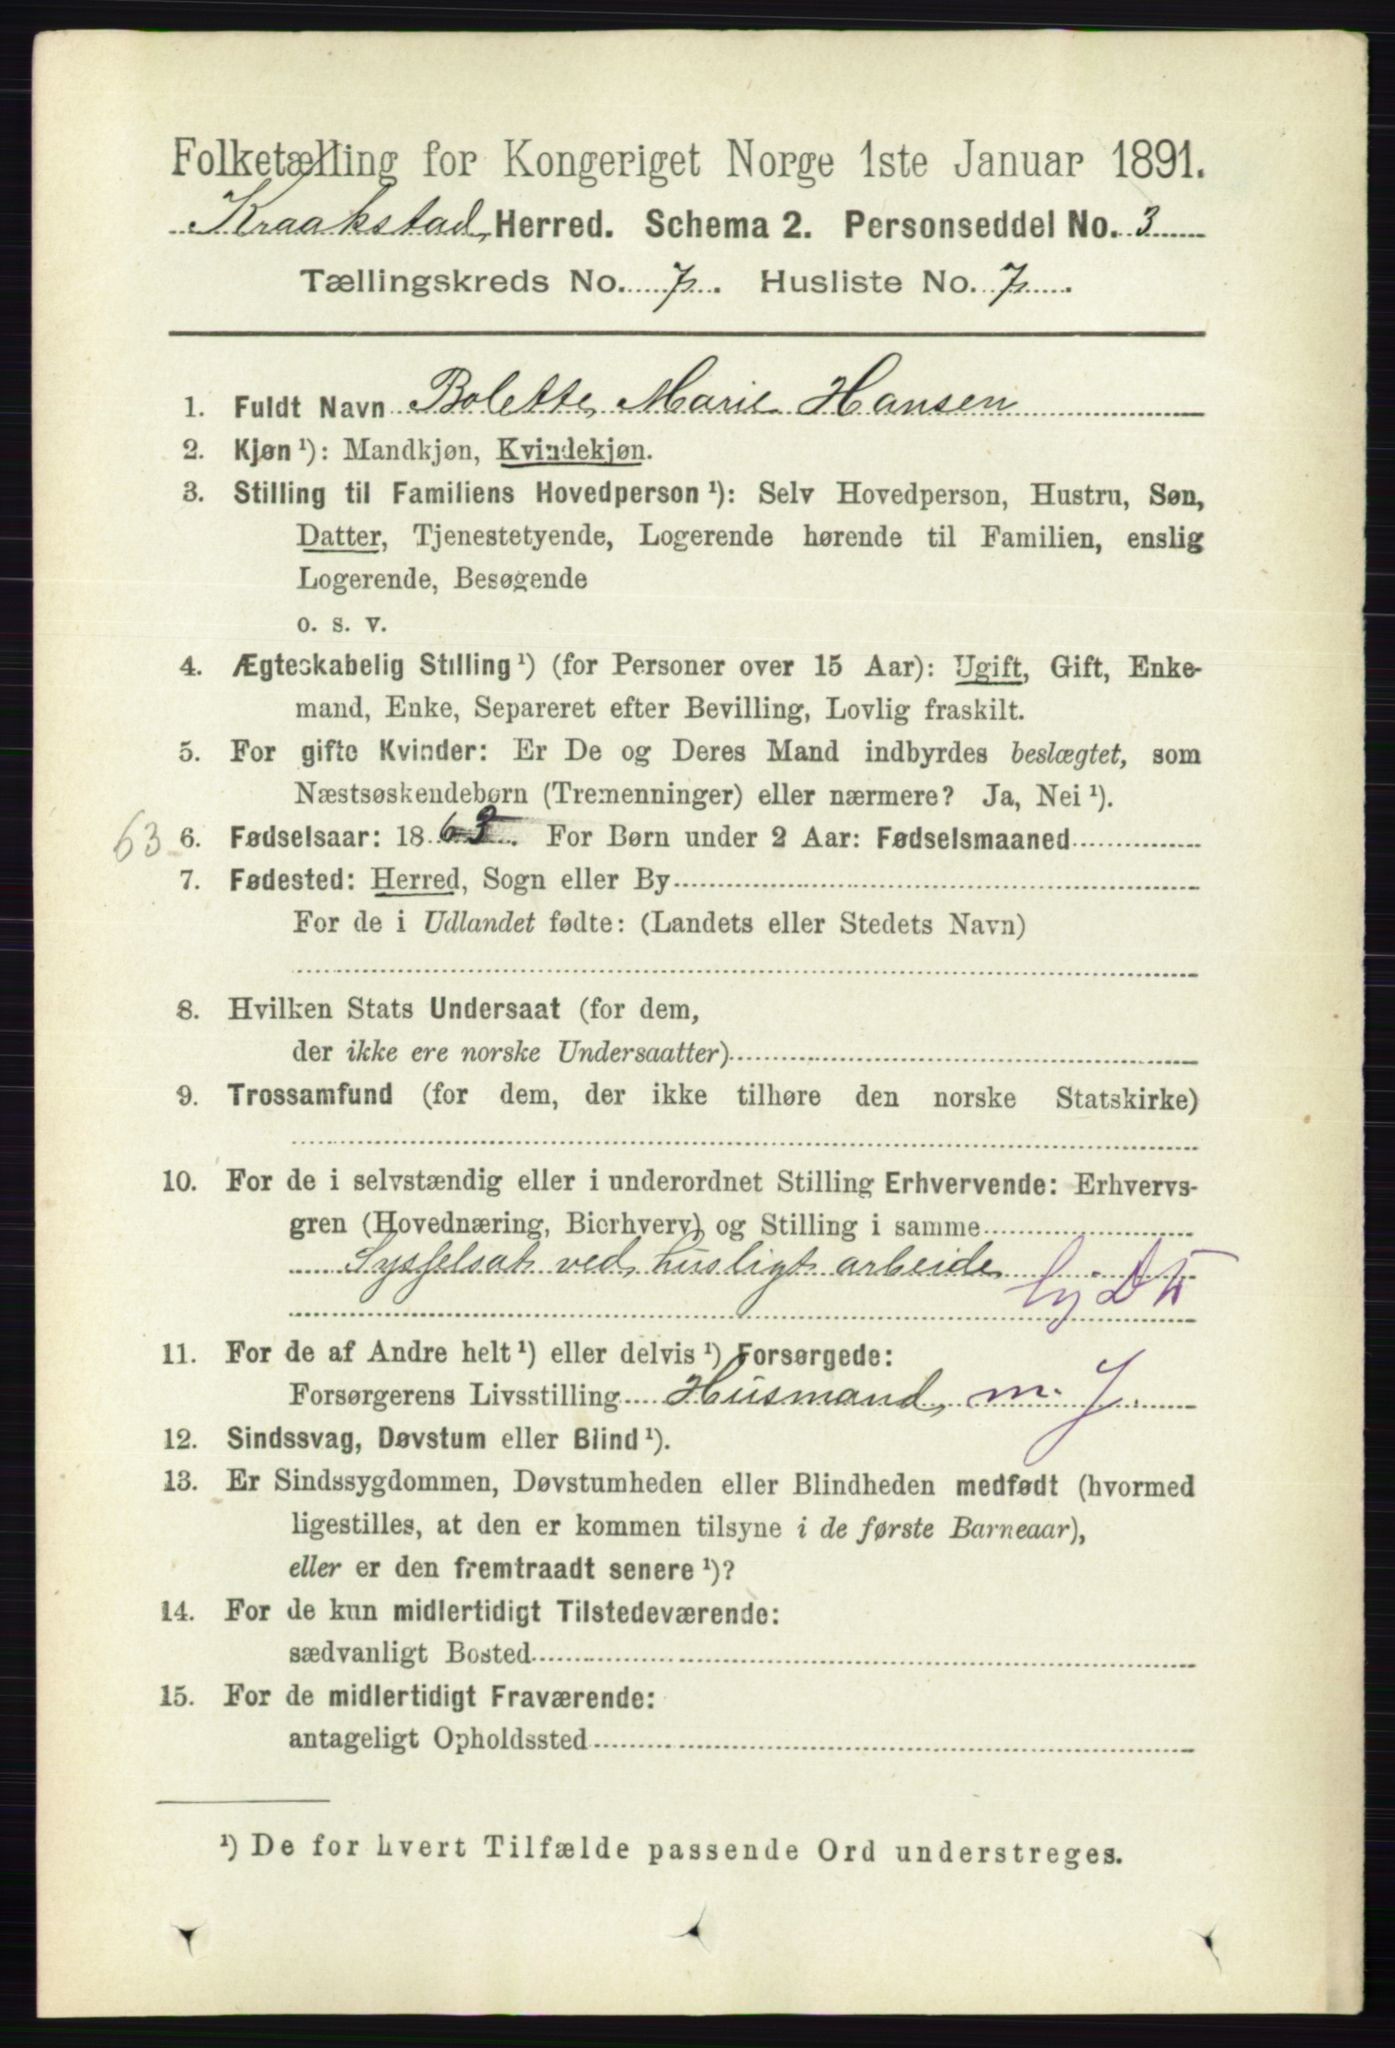 Folketælling for Kongeriget Norge 1ste Januar 1891.
Kraakstad Herred. Schema 2. Personseddel No. 3
Tællingskreds No. 7. Husliste No. 7.
1. Fuldt Navn Bolette Marie Hansen
2. Kjøn ¹): Mandkjøn, Kvindekjøn.
3. Stilling til Familiens Hovedperson ¹): Selv Hovedperson, Hustru, Søn,
Datter, Tjenestetyende, Logerende hørende til Familien, enslig
Logerende, Besøgende
o. s. v.
4. Ægteskabelig Stilling ¹) (for Personer over 15 Aar): Ugift, Gift, Enke-
mand, Enke, Separeret efter Bevilling, Lovlig fraskilt.
5. For gifte Kvinder: Er De og Deres Mand indbyrdes beslægtet, som
Næstsøskendebørn (Tremenninger) eller nærmere? Ja, Nei ¹).
63 6. Fødselsaar: 1863. For Børn under 2 Aar: Fødselsmaaned
7. Fødested: Herred, Sogn eller By
For de i Udlandet fødte: (Landets eller Stedets Navn)
8. Hvilken Stats Undersaat (for dem,
der ikke ere norske Undersaatter)
9. Trossamfund (for dem, der ikke tilhøre den norske Statskirke)
10. For de i selvstændig eller i underordnet Stilling Erhvervende: Erhvervs-
gren (Hovednæring, Bierhverv) og Stilling i samme
Sysselsat ved husligt arbeide
11. For de af Andre helt ¹) eller delvis ¹) Forsørgede:
Forsørgerens Livsstilling Husmand m. J.
12. Sindssvag, Døvstum eller Blind ¹).
13. Er Sindssygdommen, Døvstumheden eller Blindheden medfødt (hvormed
ligestilles, at den er kommen tilsyne i de første Barneaar),
eller er den fremtraadt senere ¹)?
14. For de kun midlertidigt Tilstedeværende:
sædvanligt Bosted
15. For de midlertidigt Fraværende:
antageligt Opholdssted
¹) De for hvert Tilfælde passende Ord understreges.